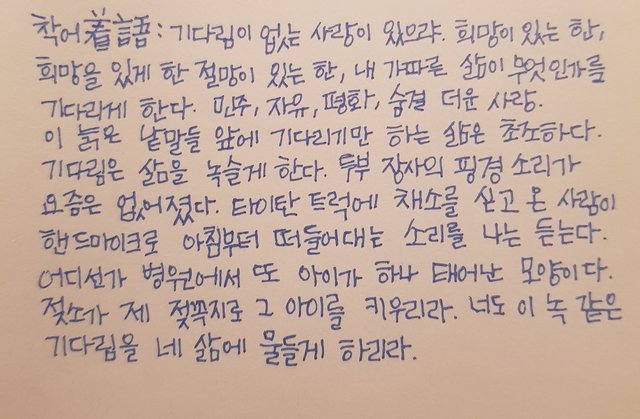 착어着語 : 기다림이 없는 사랑이 있으랴. 희망이 있는 한,
희망을 있게 한 절망이 있는 한, 내 가파른 삶이 무엇인가를
기다리게 한다. 민주, 자유, 평화, 숨결 더운 사랑.
이 늙은 낱말들 앞에 기다리기만 하는 삶은 초조하다.
기다림은 삶을 녹슬게 한다. 두부 장사의 핑경 소리가
요즘은 없어졌다. 타이탄 트럭에 채소를 싣고 온 사람이
핸드마이크로 아침부터 떠들어대는 소리를 나는 듣는다.
어디선가 병원에서 또 아이가 하나 태어난 모양이다.
젖소가 제 젖꼭지로 그 아이를 키우리라. 너도 이 녹 같은
기다림을 네 삶에 물들게 하리라.